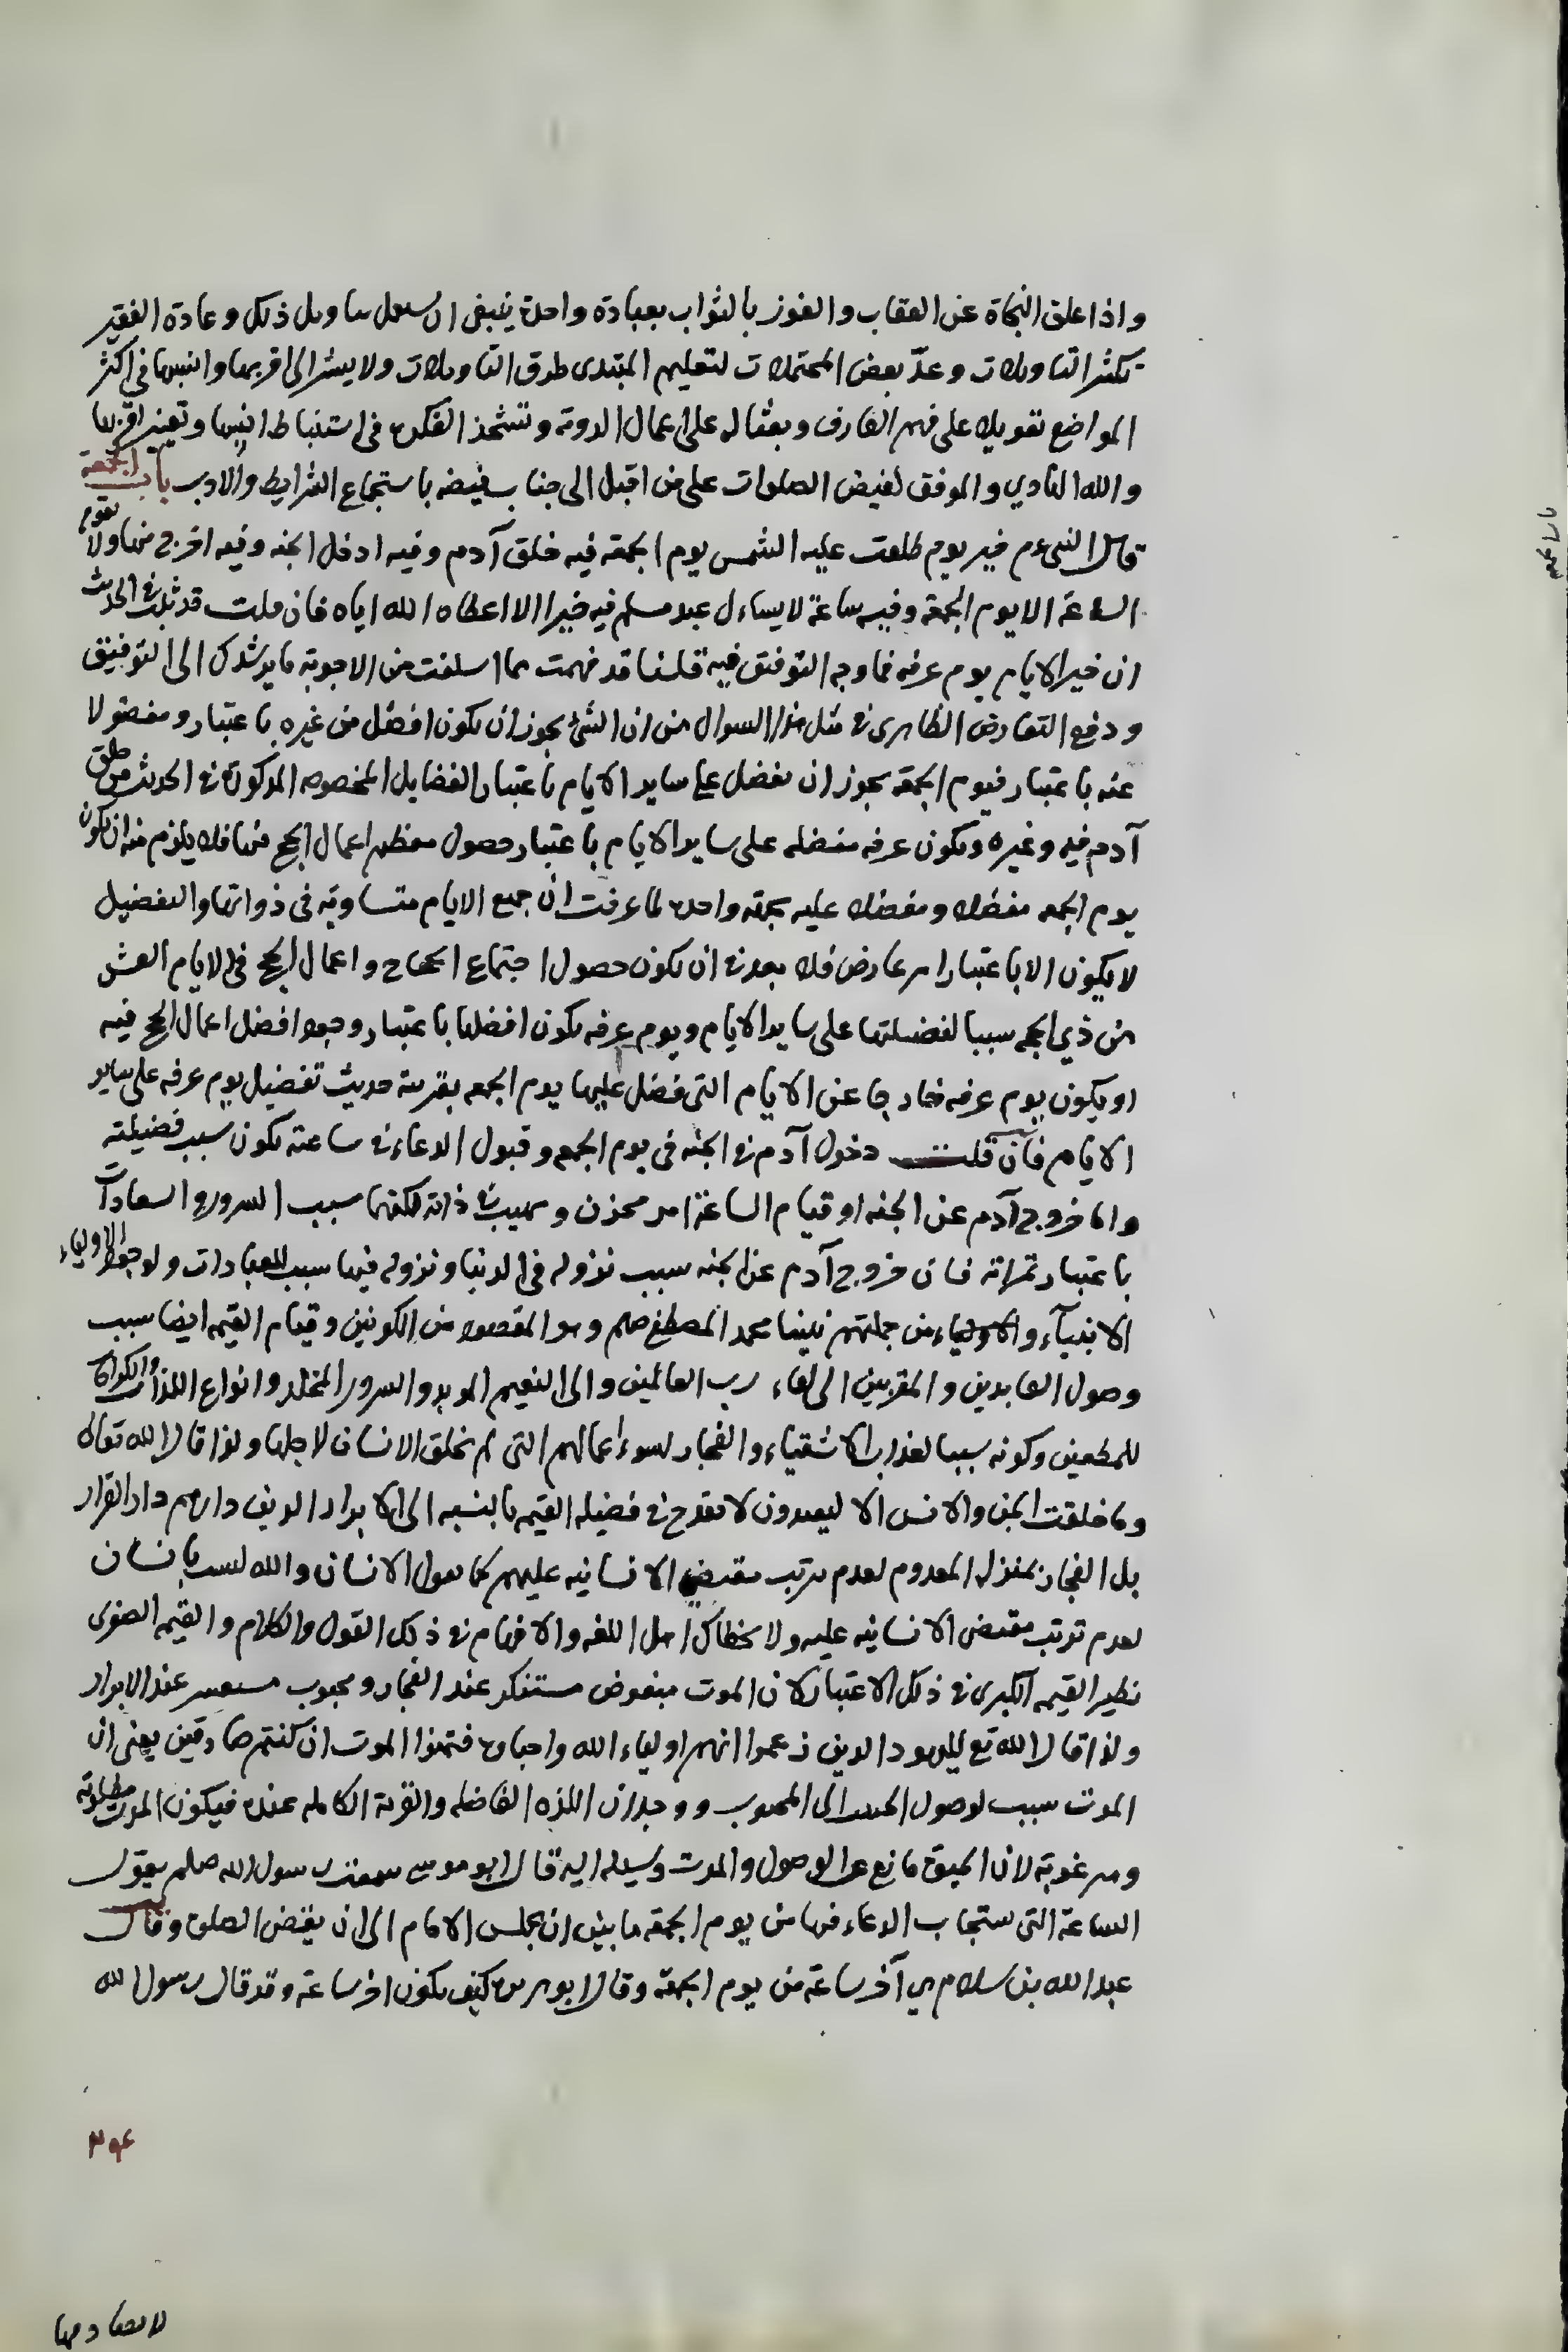 واذا علق النجاة عن العقاب والفوز بالثواب بعبادة واحدة ينبغي ان ذلك وعادة الفقير
تكثر التاويلات وعدّ بعض المحتملات لتعليم المبتدى طرق التاويلات ولا يشير الى اقربها وانسبها في اكثر
المواضع تعويلا على فهم العارف وبعثا له على اعمال الروية وتشحذ الفكرة في استنباط انسبها وتعيين اقربها
والله الهادي والموفق لفيض الصلوات على من اقبل الى جناب فيضه باستجماع الشرايط والادب باب الجمعة
قال النبي عم خير يوم طلعت عليه الشمس يوم الجمعة فيه خلق آدم وفيه ادخل الجنه وفيه اخرج منها ولا تقوم
الساعة الا يوم الجمعة وفيه ساعة لا يساءل عبد مسلم فيه خيرا الا اعطاه الله اياه فان قلت قد ثبت في الحديث
ان خير الايام يوم عرفه فما وجه التوفيق فيه قلنا قد فهمت مما اسلفت من الاجوبة ما يرشدك الى التوفيق
ودفع التعارض الظاهرى في مثل هذا السوال من ان الشئ يجوز ان يكون افضل من غيره باعتبار ومفضولا
عنه باعتبار فيوم الجمعة يجوز ان يفضل على ساير الايام باعتبار الفضايل المخصوصه المذكورة في الحديث من خلق
آدم فيه وغيره ويكون عرفه مفضله على ساير الايام باعتبار حصول معظم اعمال الحج فيها فلا يلزم منه ان يكون
يوم الجمعه مفضلا ومفضلا عليه بجهة واحدة لما عرفت ان جميع الايام متساوية في ذواتها والتفضيل
لا يكون الا باعتبار امر عارض فلا بعد في ان يكون حصول اجتماع الحجاج واعمال الحج في الايام العشر
من ذي الحجه سببا لفضيلتها على ساير الايام ويوم عرفه يكون افضلها باعتبار وجود افضل اعمال الحج فيه
او يكون يوم عرفه خارجا عن الايام التى فضل عليها يوم الجمعه بقرينة حديث تفضيل يوم عرفه على ساير
الايام فان قلت دخول آدم في الجنه في يوم الجمعه وقبول الدعاء في ساعته يكون سبب فضيلته
واما خروج آدم عن الجنه او قيام الساعة امر محزن ومهيب في ذاته لكنها سبب السرور والسعادات
باعتبار ثمراته فان خروج آدم عن الجنه سبب نزوله في الدنيا ونزوله فيها سبب للعبادات ولوجود الاولياء
الانبيآء والاولياء من جملتهم نبينا محمد المصطفى صلعم وهو المقصود من الكونين وقيام القيمه ايضا سبب
وصول العابدين والمقربين الى لقاء رب العالمين والى النعيم الموبد والسرور المخلد وانواع اللذات والكرامات
للمطيعين وكونه سببا لعذاب الاشقياء والفجار لسوء اعمالهم التى لم يخلق الانسان لاجلها ولذا قال الله تعالى
وما خلقت الجن والانس الا ليعبدون لا يقدح في فضيله القيمه بالنسبه الى الابرار الذين دارهم دار القرار
بل الفجار بمنزلة المعدوم لعدم ترتب مقتضى الانسانيه عليهم كما يقول الانسان والله لست بانسان
لعدم ترتب مقتضى الانسانيه عليه ولا يخطاك اهل اللغه والافهام في ذلك القول والكلام والقيمه الصغرى
نظير القيمه الكبرى في ذلك الاعتبار لان الموت مبغوض مستنكر عند الفجار ومحبوب عند الابرار
ولذا قال الله تع لليهود الذين زعموا انهم اولياء الله واحباءه فتمنوا الموت ان كنتم صادقين يعني ان
الموت سبب لوصول الحبيب الى المحبوب ووجدان اللذه الفاضله والقربة الكامله عنده فيكون الموت مطلوبة
ومرغوبة لان الحيوة مانع عن الوصول والموت وسيله اليه قال ابو موسى سمعت رسول الله صلعم يقول
الساعة التى ستجاب الدعاء فيها من يوم الجمعة ما بين ان يجلس الامام الى ان يقضى الصلوة وقال
عبد الله بن سلام هي آخر ساعة من يوم الجمعة وقال ابو هريرة كيف يكون اخر ساعة وقد قال رسول الله
لا يصادفها